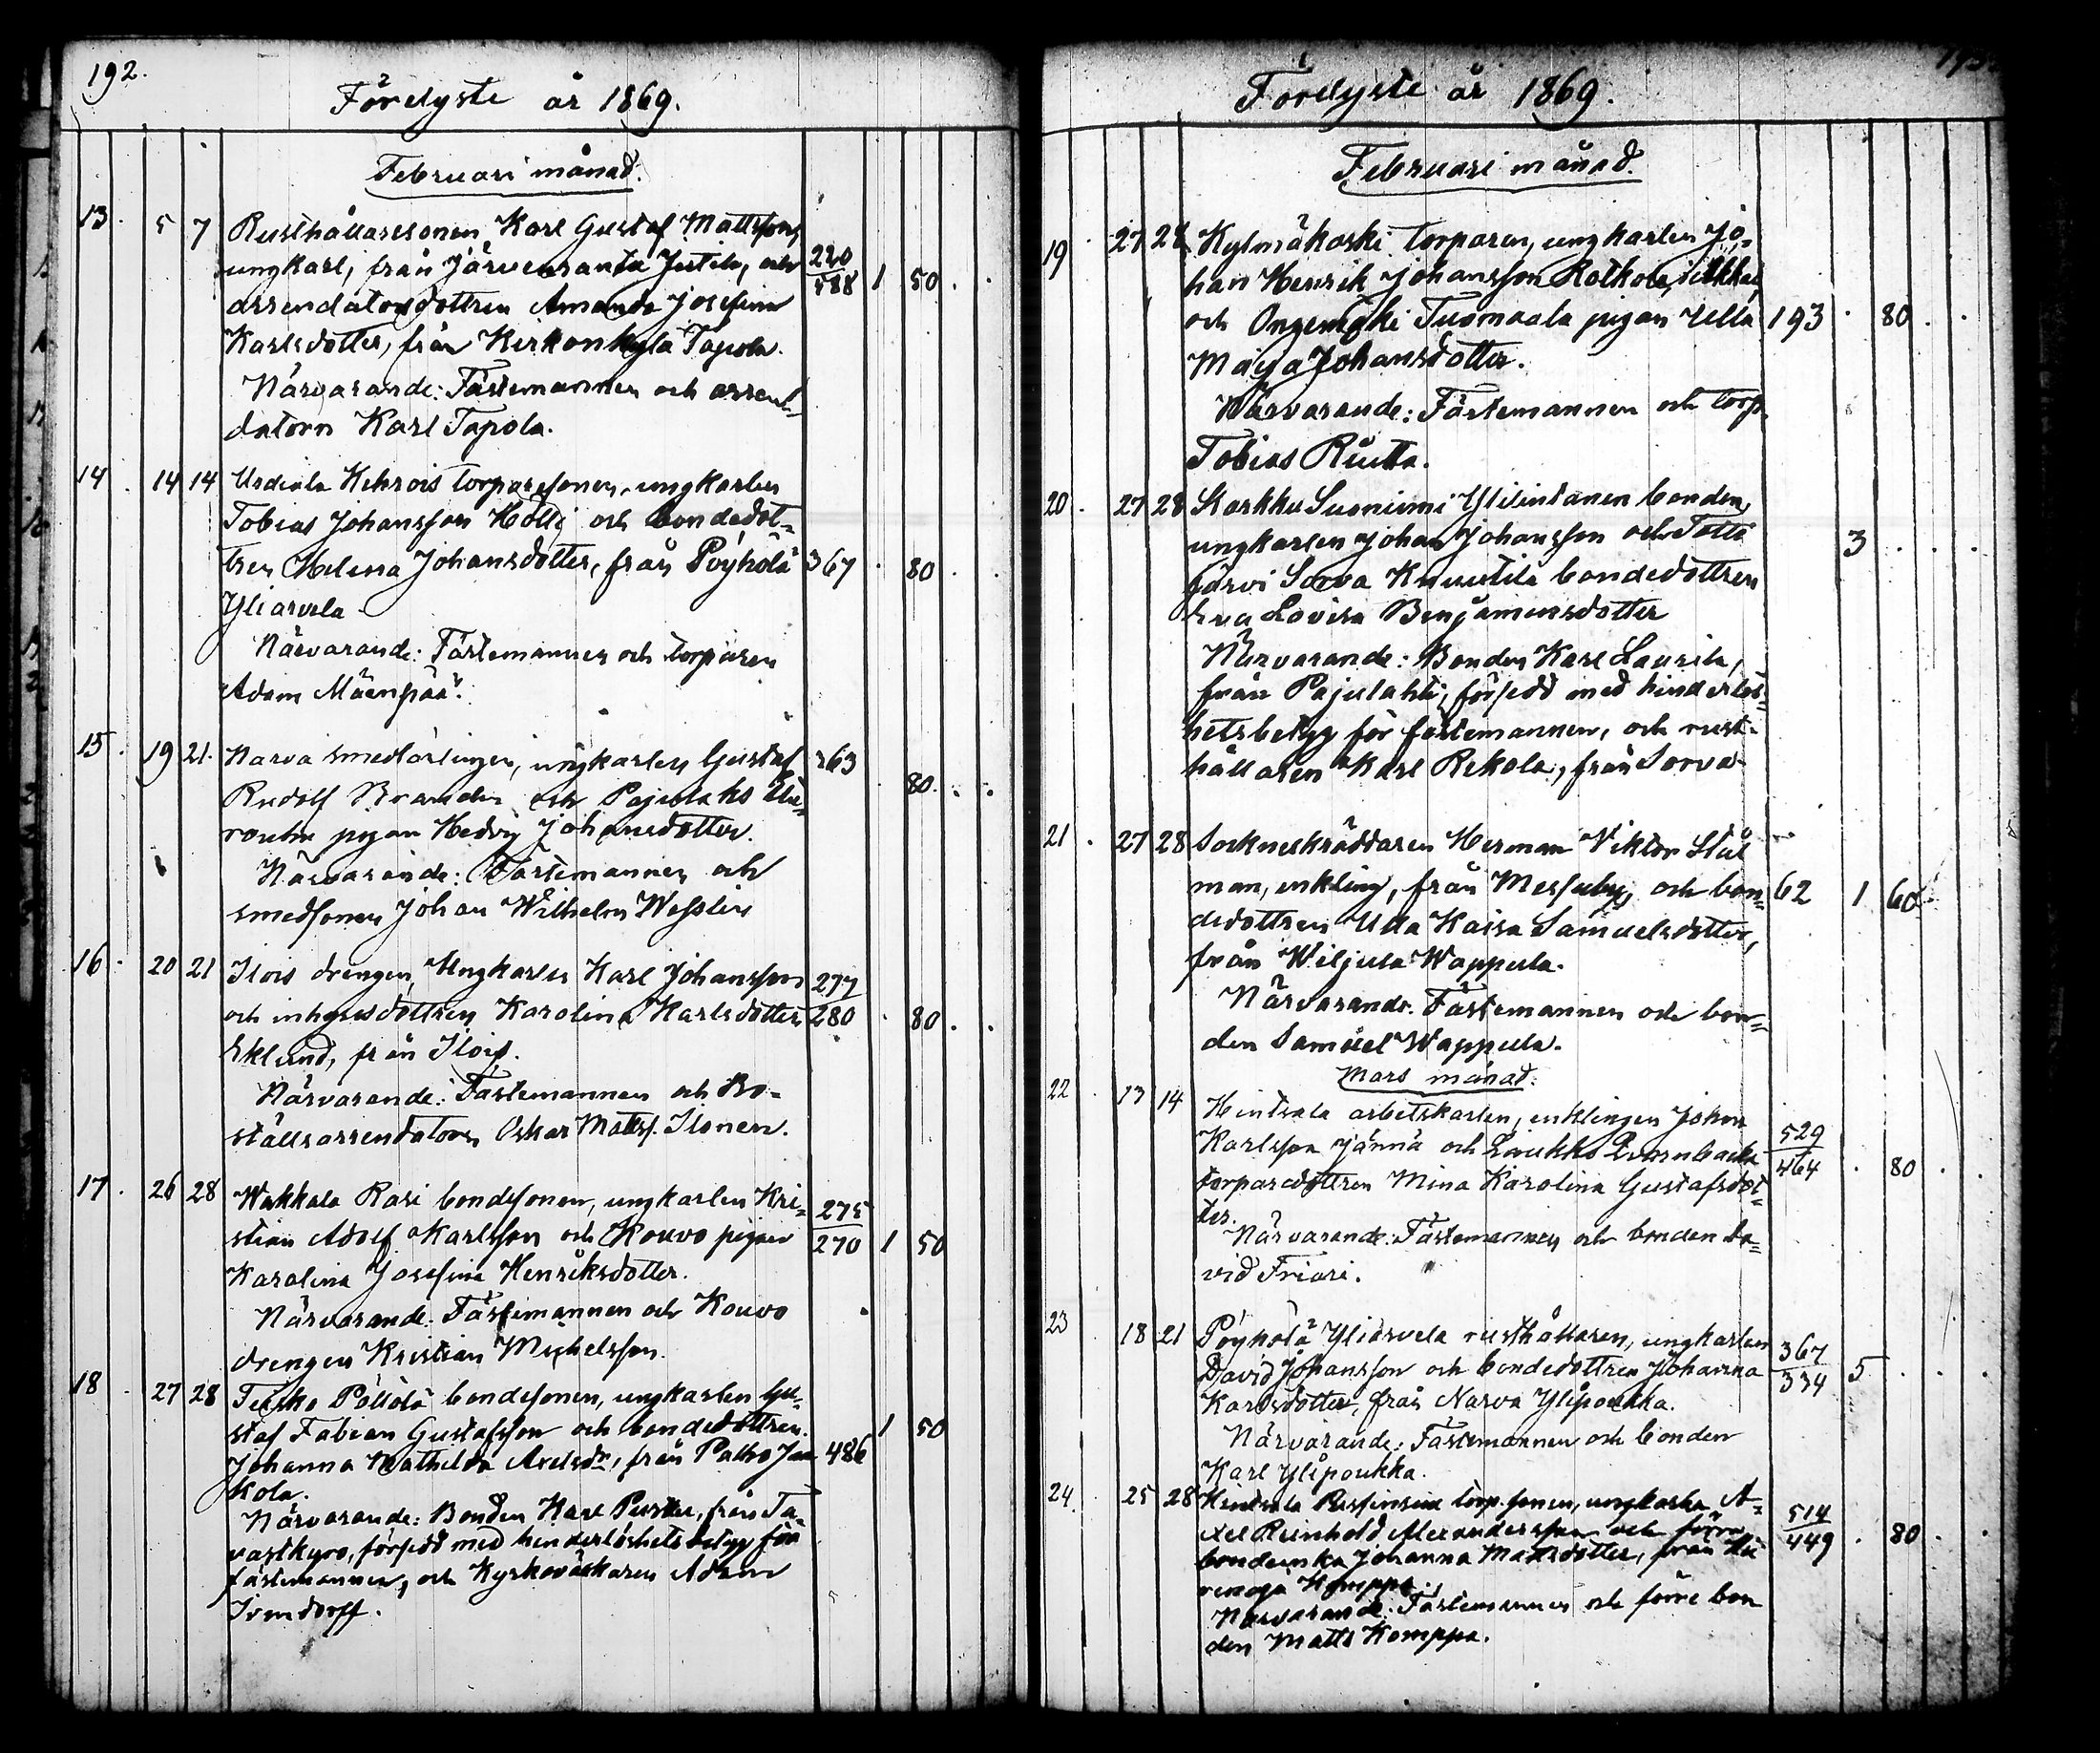 192.
Förelyste år 1869.
Februari månad.
13. 5 7 Rusthållaresonen Karl Gustaf Mattsson,
ungkarl, från Järvenranta Jutila, och 220/588 1 50
arrendatorsdottren Amanda Josefina
Karlsdotter, från Kirkonkylä Tapola.
Närvarande: Fästemannen och arren-
datorn Karl Tapola.
14. 14 14 Urdiala torparesonen, ungkarlen
Tobias Johansson och bondedot-
tren Helena Johansdotter, från Pöyhölä 367 80
Yliarvela
Närvarande: Fästemannen och torparen
Adam Mäenpää.
15. 19 21. Narva smedlärlingen, ungkarlen Gustaf 263
Rudolf och 80.
pigan Hedvig Johansdotter.
Närvarande: Fästemannen och
smedsonen Johan Wilhelm
16. 20 21 Ilois drengen, Ungkarlen Karl Johansson 277
och inhysesdottren Karolina Karlsdotter 280 80
Eklund, från Ilois.
Närvarande: Fästemannen och Bo-
ställsarrendatorn Oskar Matts. Ilonen.
17. 26 28 Wakkala Rasi bondesonen, ungkarlen Kri- 275
stian Adolf Karlsson och Kouvo pigan 270 1 50
Karolina Josefina Henriksdotter.
Närvarande: Fästemannen och Kouvo
drengen Kristian Michelsson.
18 27 28 bondesonen, ungkarlen Gu-
staf Fabian Gustafsson och bondedottren 1 50
Johanna Mathilda Axelsdr, från 486
kola.
Närvarande: Bonden Karl från Ta-
vastkyro, försedd med hinderlöshetsbetyg för
fästemannen, och Kyrkoväktaren Adam
Irmdorff.
Förelyste år 1869.
Februari månad.
19 27 28 Kylmäkoski torparen, ungkarlen Jo-
han Henrik Johansson
och Tuomaala pigan Ulla 193 80
Maja Johansdotter.
Närvarande: Fästemannen och torp.
Tobias
20. 27 28 Karkku Suoniemi bonden,
ungkarlen Johan Johansson och Totti- 3
järvi Sorva Knuutila bondedottren
Eva Lovisa Benjaminsdotter
Närvarande: Bonden Karl Laurila,
från Pajulahti, försedd med hinderlös-
hetsbetyg för fästemannen, och rust-
hållaren Karl Rekola, från Sorva.
21. 27 28 Socknekräddaren Herman Viktor Stål
man, enkling, från Messuby, och bon- 62 1 60
dedottren Ulla Kaisa Samuelsdotter,
från Wiljula Wappula.
Närvarande: Fästemannen och bon-
den Samuel Wappula.
Mars månad.
22. 13 14 Hintsala arbetskarlen, enklingen Johan
Karlsson Jännä och 529
torparedottren Mina Karolina Gustafsdot- 464 80
ter.
Närvarande: Fästemannen och bonden Da-
vid Friari.
23 18 21 Pöyhölä Yliarvela rusthållaren, ungkarlen 367
David Johansson och bondedottren Johanna 334 5
Karlsdotter, från Narva Ylipoukka.
Närvarande: Fästemannen och bonden
Karl Ylipoukka.
24. 25 28 Hintsala torp.sonen, ungkarlen A-
xel Reinhold Alexandersson och förre 514
bondenka Johanna Mattsdotter, från 449 80
Komppa.
Närvarande: Fästemannen och förre bon
den Matts Komppa.